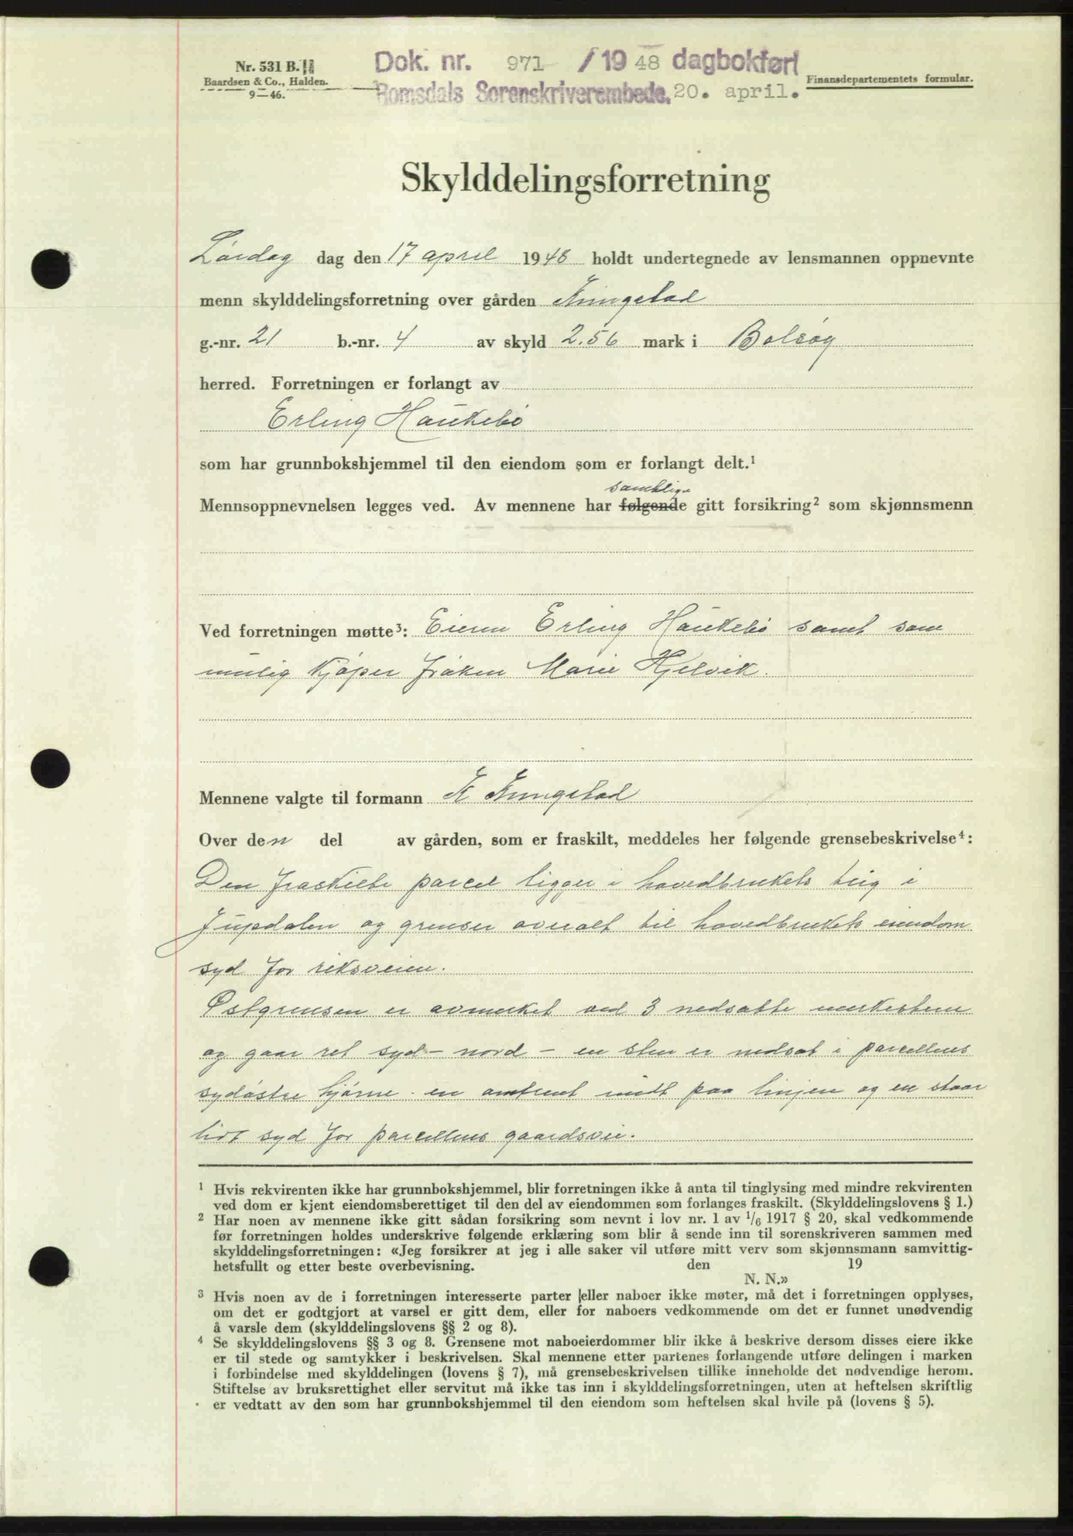 Nr. 531 B.
Baardsen & Co., Halden.
9—46.
Dok. nr. 971 /1948 dagbokført
Romsdals Sorenskriverembede. 20. april.
Finansdepartementets formular.
Skylddelingsforretning
Lørdag dag den 17 april 1948 holdt undertegnede av lensmannen oppnevnte
menn skylddelingsforretning over gården Kringstad
g.-nr. 21 b.-nr. 4 av skyld 2.56 mark i Bolsøy
herred. Forretningen er forlangt av
Erling Haukebø
som har grunnbokshjemmel til den eiendom som er forlangt delt.¹
samtlige
Mennsoppnevnelsen legges ved. Av mennene har følgende gitt forsikring² som skjønnsmenn
Ved forretningen møtte³: Eieren Erling Haukebø samt som
mulig kjøper frøken Marie Hjelvik.
Mennene valgte til formann K Kringstad
Over den del av gården, som er fraskilt, meddeles her følgende grensebeskrivelse⁴:
Den fraskilte parcel ligger i hovedbrukets teig i
Jupdalen og grenser overalt til hovedbrukets eiendom
syd for riksveien.
Østgrensen er avmerket ved 3 nedsatte merkestene
og gaar ret syd - nord - en sten er nedsat i parcellens
sydøstre hjørne - en omtrent midt paa linjen og en staar
lidt syd for parcellens gaardsvei.
¹ Hvis rekvirenten ikke har grunnbokshjemmel, blir forretningen ikke å anta til tinglysing med mindre rekvirenten
ved dom er kjent eiendomsberettiget til den del av eiendommen som forlanges fraskilt. (Skylddelingslovens § 1.)
² Har noen av mennene ikke gitt sådan forsikring som nevnt i lov nr. 1 av 1/6 1917 § 20, skal vedkommende
før forretningen holdes underskrive følgende erklæring som blir å sende inn til sorenskriveren sammen med
skylddelingsforretningen: «Jeg forsikrer at jeg i alle saker vil utføre mitt verv som skjønnsmann samvittig-
hetsfullt og etter beste overbevisning. den 19
N. N.»
³ Hvis noen av de i forretningen interesserte parter eller naboer ikke møter, må det i forretningen opplyses,
om det er godtgjort at varsel er gitt dem, eller for naboers vedkommende om det er funnet unødvendig
å varsle dem (skylddelingslovens §§ 2 og 8).
⁴ Se skylddelingslovens §§ 3 og 8. Grensene mot naboeierdommer blir ikke å beskrive dersom disses eiere ikke
er til stede og samtykker i beskrivelsen. Skal mennene etter partenes forlangende utføre delingen i marken
i forbindelse med skylddelingen (lovens § 7), må grensebeskrivelsen tillike inneholde det nødvendige herom.
Stiftelse av bruksrettighet eller servitut må ikke tas inn i skylddelingsforretningen, uten at heftelsen skriftlig
er vedtatt av den som har grunnbokshjemmel til den eiendom som heftelsen skal hvile på (lovens § 5).